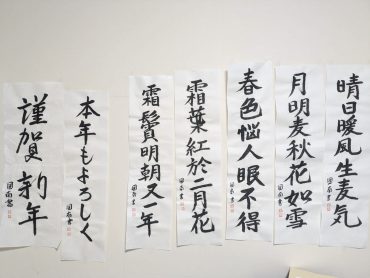 晴日暖風生麦気
月明麦秋花如雪
春色悩人眠不得
霜葉紅於二月花
霜鬢明朝又一年
本年もよろしく
謹賀新年